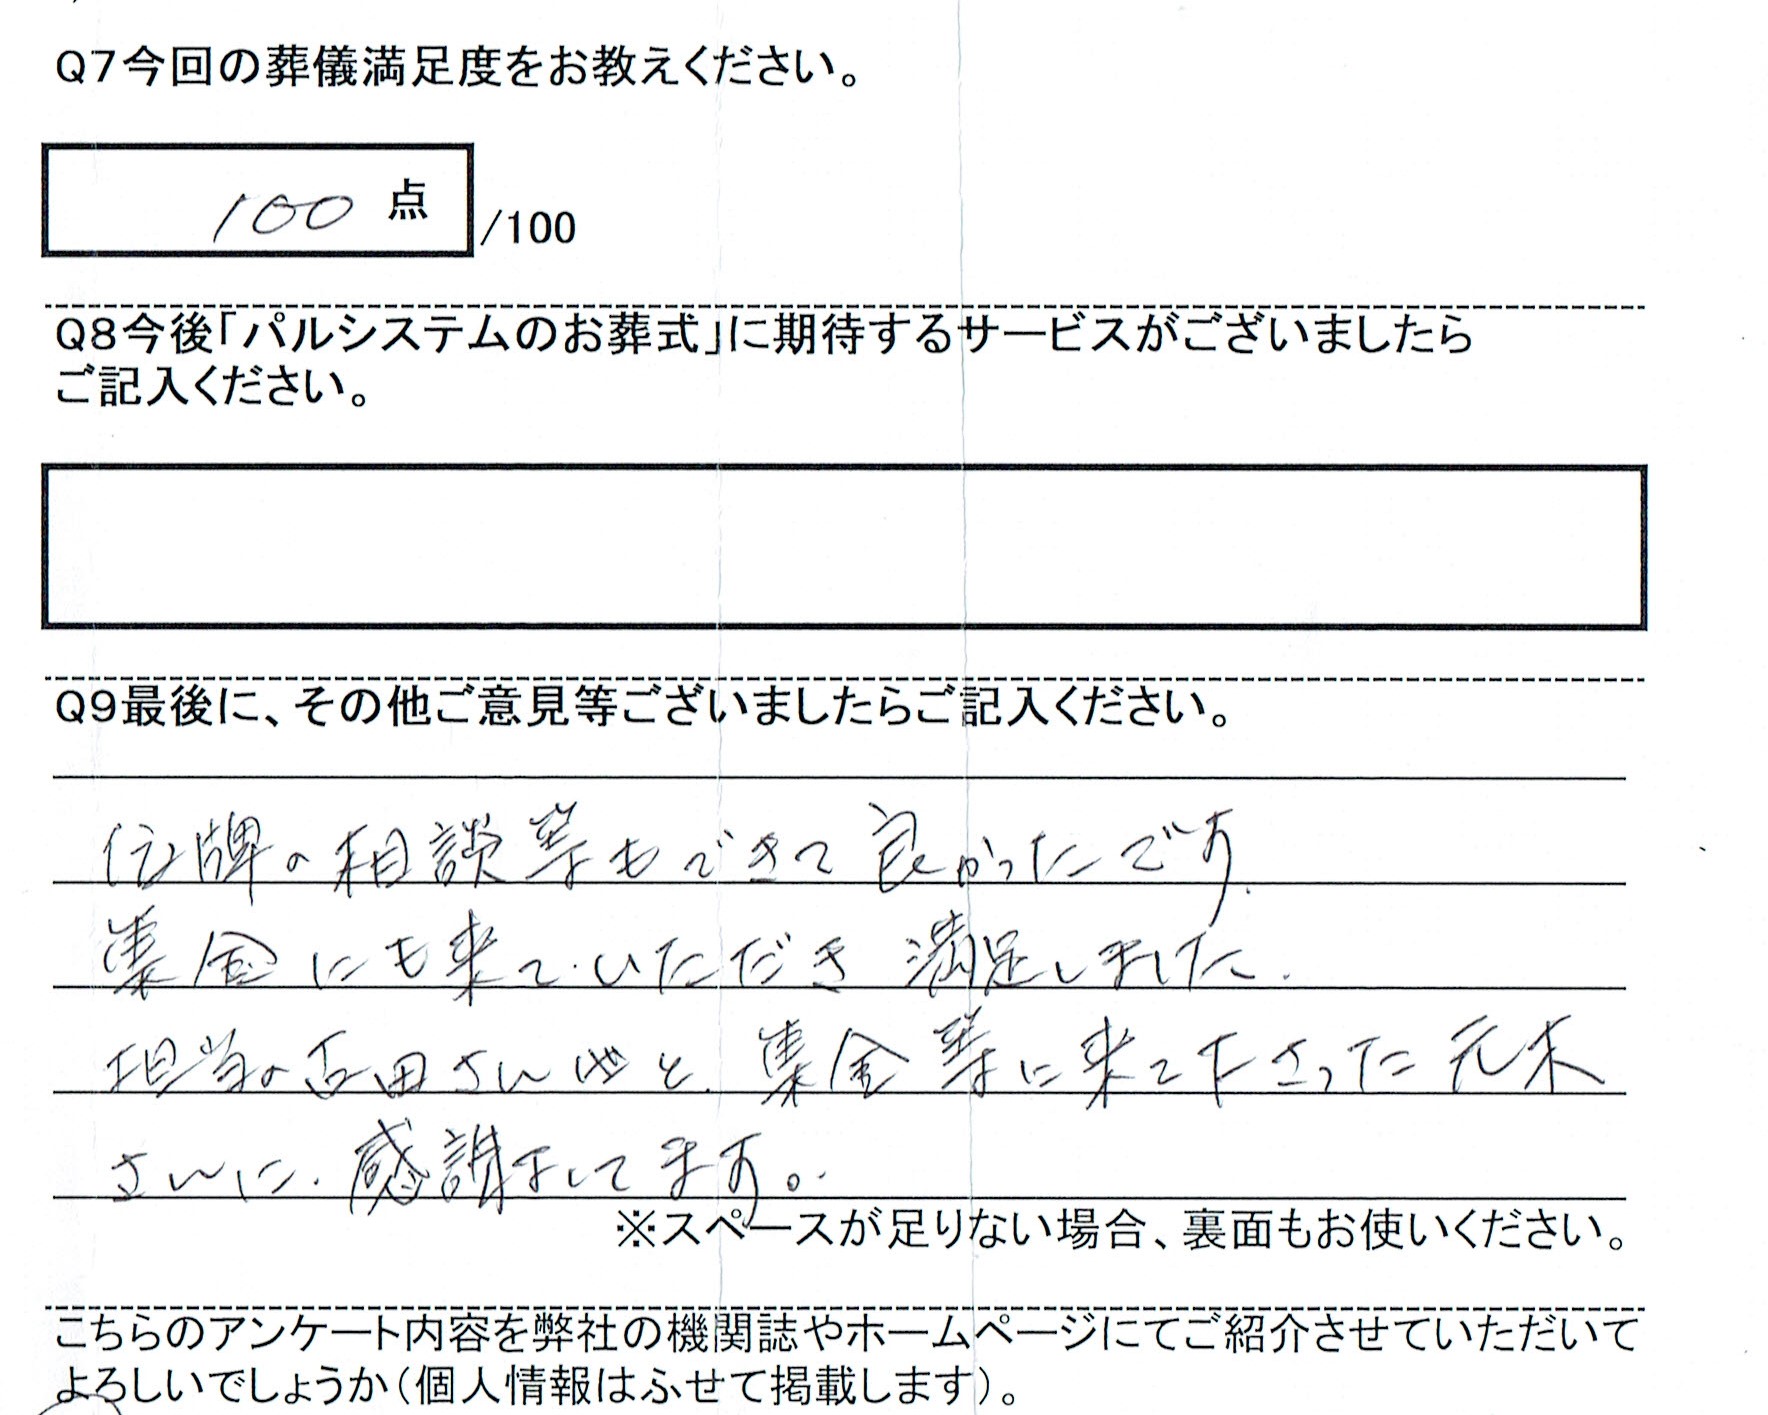 Q7今回の葬儀満足度をお教えください。
100 点 /100
Q8今後「パルシステムのお葬式」に期待するサービスがございましたら
ご記入ください。
Q9最後に、その他ご意見等ございましたらご記入ください。
位牌の相談等もできて良かったです.
集金にも来ていただき満足しました.
担当の吉田さん他と.集金等に来て下さった元木
さんに.感謝してます。
※スペースが足りない場合、裏面もお使いください。
こちらのアンケート内容を弊社の機関誌やホームページにてご紹介させていただいて
よろしいでしょうか(個人情報はふせて掲載します)。